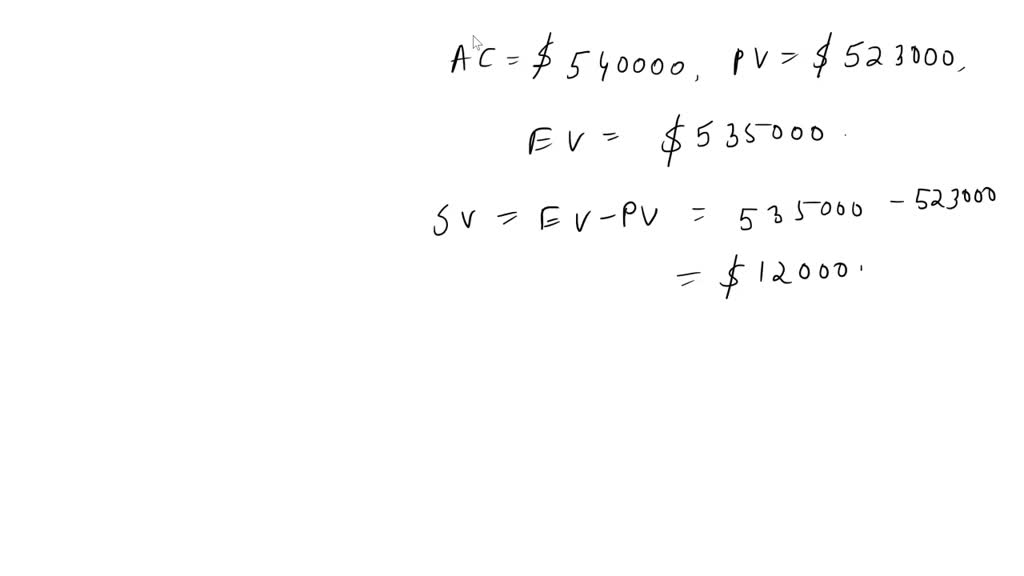 AC = $ 540000, PV = $ 523000,
EV = $ 535000.
SV = EV - PV = 535000 - 523000
= $ 12000.